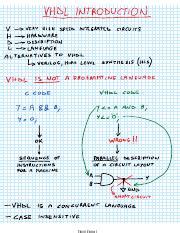 VHDL INTRODUCTION
V → VERY HIGH SPEED INTEGRATED CIRCUITS
H → HARDWARE
D → DESCRIPTION
L → LANGUAGE
ALTERNATIVES TO VHDL
↳ VERILOG, HIGH LEVEL SYNTHESIS (HLS)
VHDL IS NOT A PROGRAMMING LANGUAGE
C CODE
VHDL CODE
Y = A && B;
Y = 0;
Y <= A AND B;
Y <= '0';
OK
WRONG!!
SEQUENCE OF INSTRUCTIONS FOR A MACHINE
PARALLEL DESCRIPTION OF A CIRCUIT LAYOUT
A
B
Y
GND
SHORT CIRCUIT
- VHDL IS A CONCURRENT LANGUAGE
- CASE INSENSITIVE